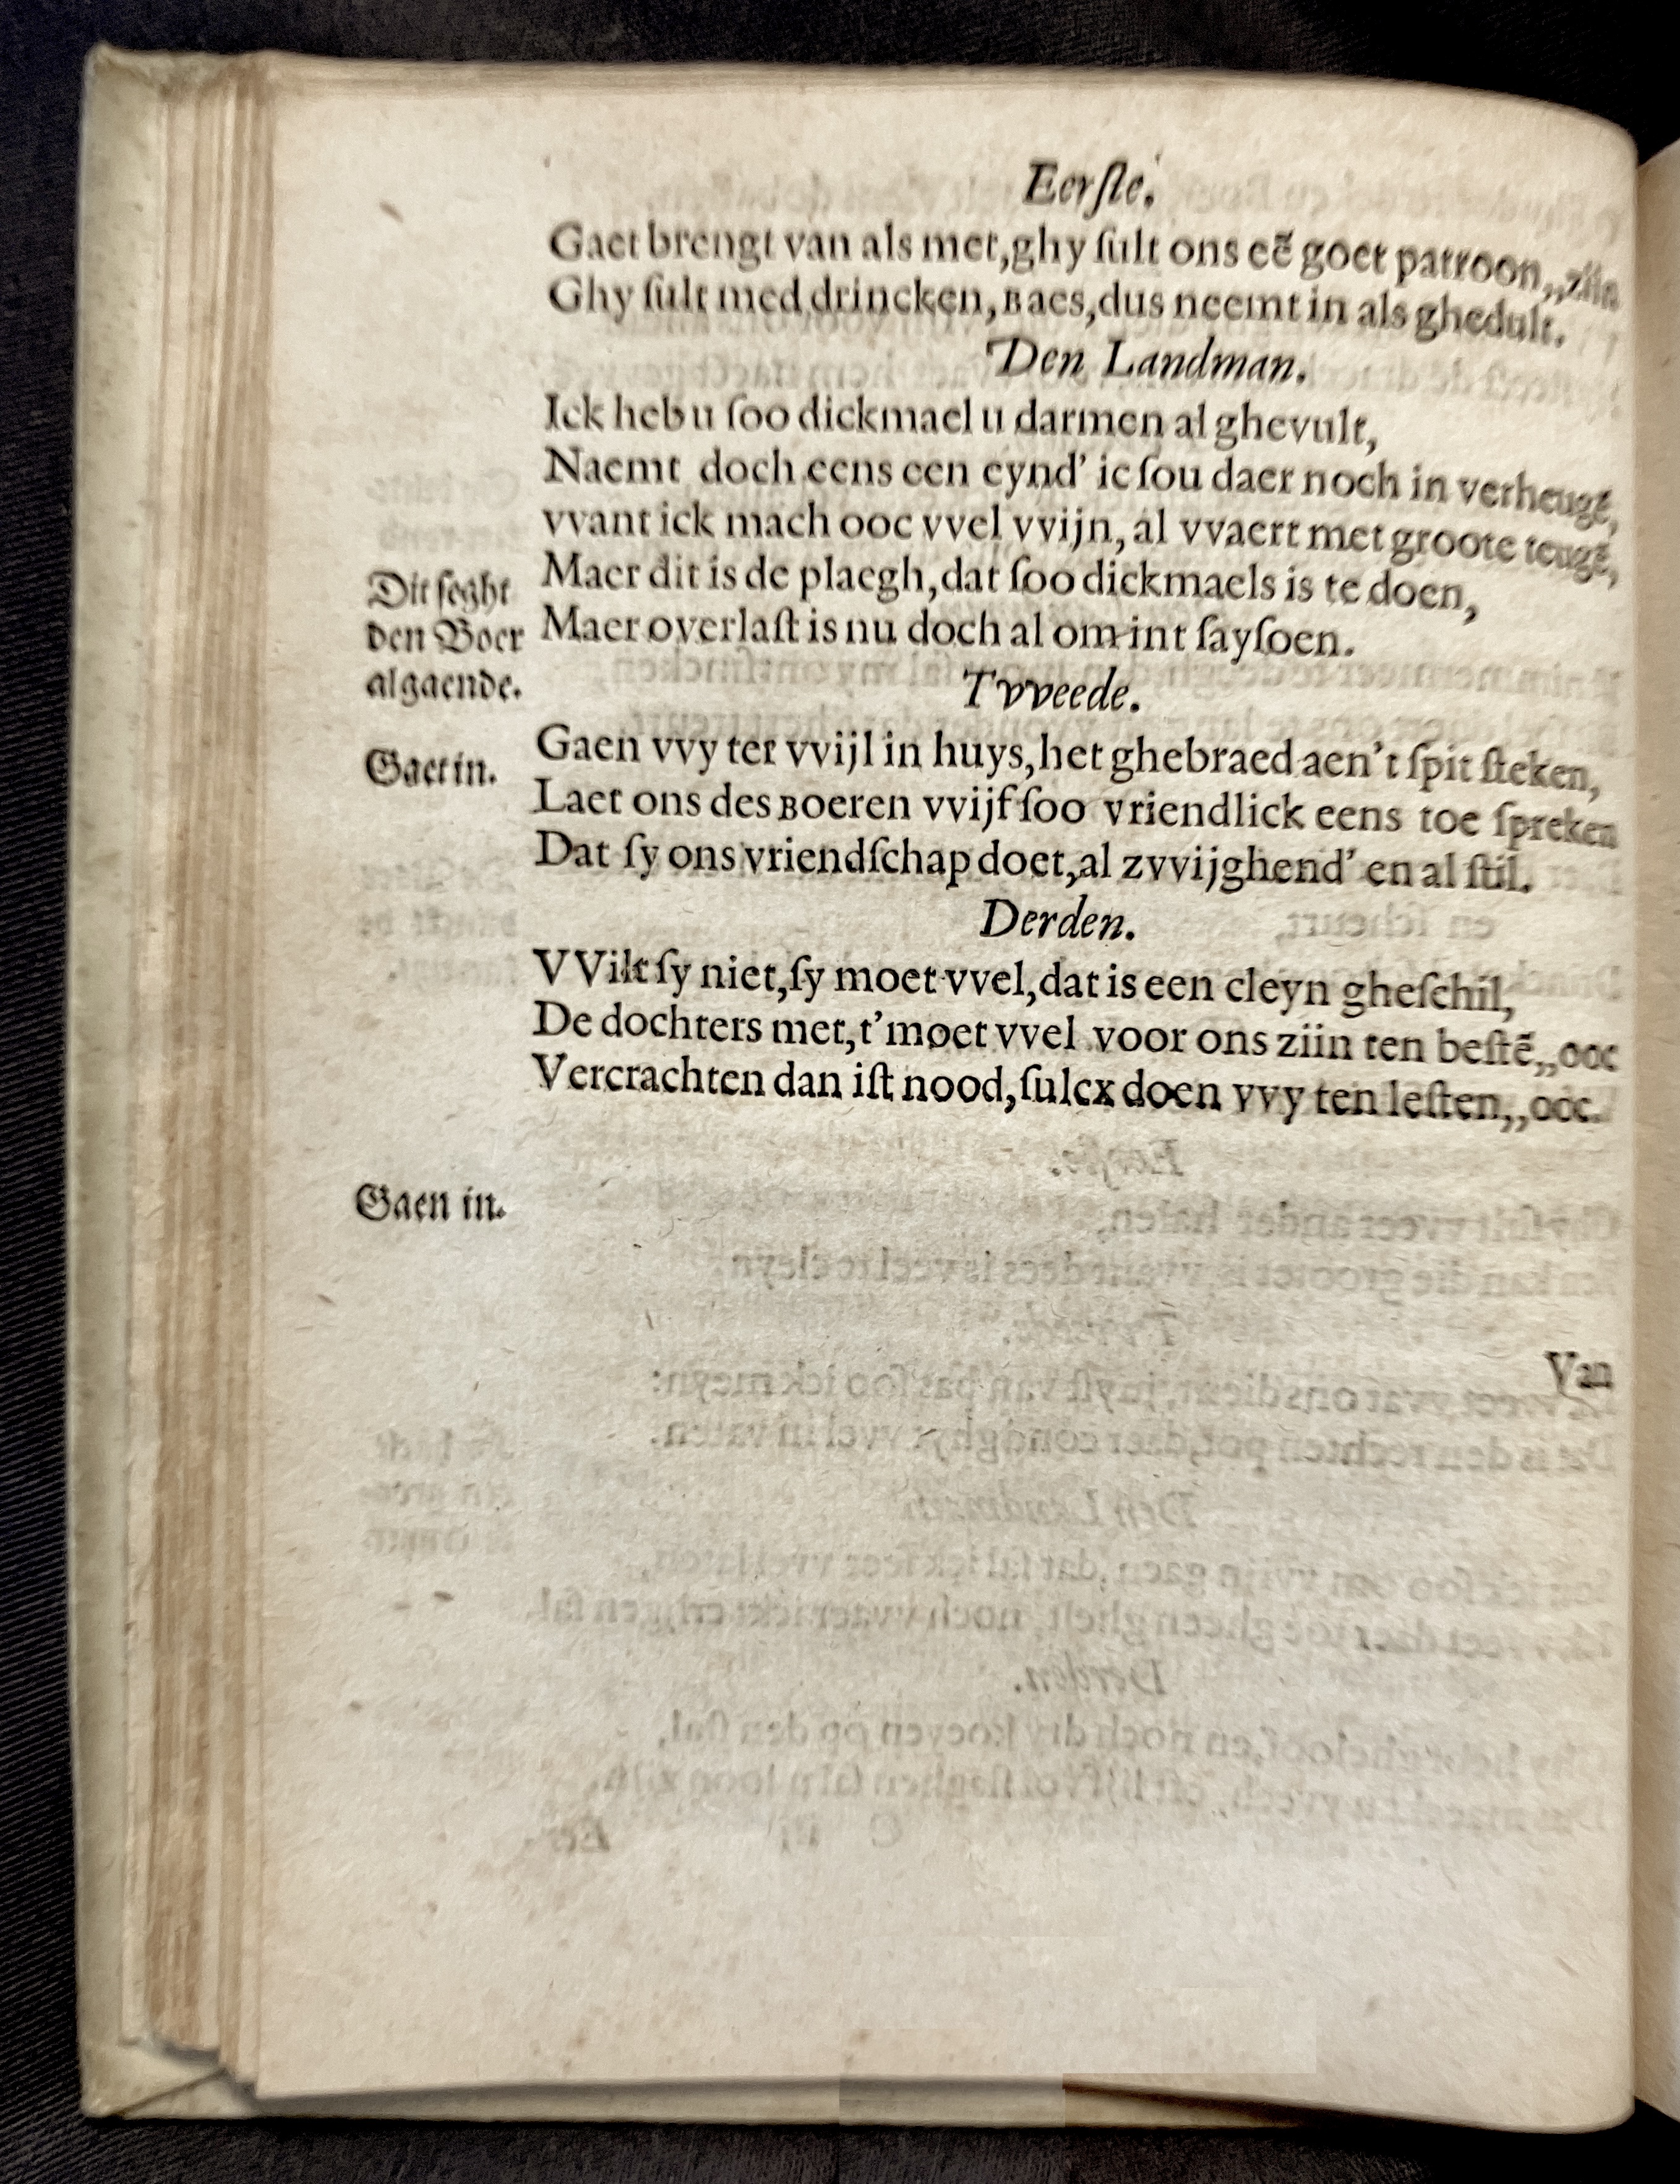 Eerſte.
Gaet brengt van als met, ghy ſult ons eẽ goet patroon,, ziin
Ghy ſult med drincken, Baes, dus neemt in als ghedult.
Den Landman.
Ick heb u ſoo dickmael u darmen al ghevult,
Naemt doch eens een eynd' ic ſou daer noch in verheugẽ,
vvant ick mach ooc vvel vvijn, al vvaert met groote teugẽ,
Maer dit is de plaegh, dat ſoo dickmaels is te doen,
Dit ſeght
den Boer
algaende.
Maer overlaſt is nu doch al om int ſayſoen.
Tvveede.
Gaet in.
Gaen vvy ter vvijl in huys, het ghebraed aen't ſpit ſteken,
Laet ons des Boeren vvijf ſoo vriendlick eens toe ſpreken
Dat ſy ons vriendſchap doet, al zvvijghend' en al ſtil.
Derden.
VVilt ſy niet, ſy moet vvel, dat is een cleyn gheſchil,
De dochters met, t'moet vvel voor ons ziin ten beſtẽ,, ooc
Vercrachten dan iſt nood, ſulcx doen vvy ten leſten,, ooc.
Gaen in.
Van